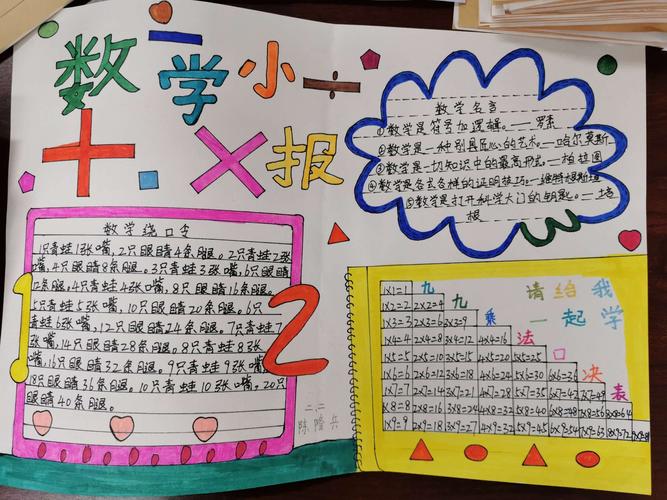 数学小报
数学绕口令
1只青蛙1张嘴，2只眼睛4条腿。2只青蛙2张
嘴，4只眼睛8条腿。3只青蛙3张嘴，6只眼睛
12条腿。4只青蛙4张嘴，8只眼睛16条腿。
5只青蛙5张嘴，10只眼睛20条腿。6只
青蛙6张嘴，12只眼睛24条腿。7只青蛙7
张嘴，14只眼睛28条腿。8只青蛙8张
嘴，16只眼睛32条腿。9只青蛙9张嘴，
18只眼睛36条腿。10只青蛙10张嘴，20只
眼睛40条腿。
1
2
二.二
陈隆兵
数学名言
①数学是符号加逻辑。——罗素
②数学是一种别具匠心的艺术。——哈尔莫斯
③数学是一切知识中的最高形式。——柏拉图
④数学是各式各样的证明技巧。——维特根斯坦
⑤数学是打开科学大门的钥匙。——培
根
请给我
一起学
九九乘法口决表
1×1=1
1×2=2 2×2=4
1×3=3 2×3=6 3×3=9
1×4=4 2×4=8 3×4=12 4×4=16
1×5=5 2×5=10 3×5=15 4×5=20 5×5=25
1×6=6 2×6=12 3×6=18 4×6=24 5×6=30 6×6=36
1×7=7 2×7=14 3×7=21 4×7=28 5×7=35 6×7=42 7×7=49
1×8=8 2×8=16 3×8=24 4×8=32 5×8=40 6×8=48 7×8=56 8×8=64
1×9=9 2×9=18 3×9=27 4×9=32 5×9=45 6×9=54 7×9=63 8×9=72 9×9=81